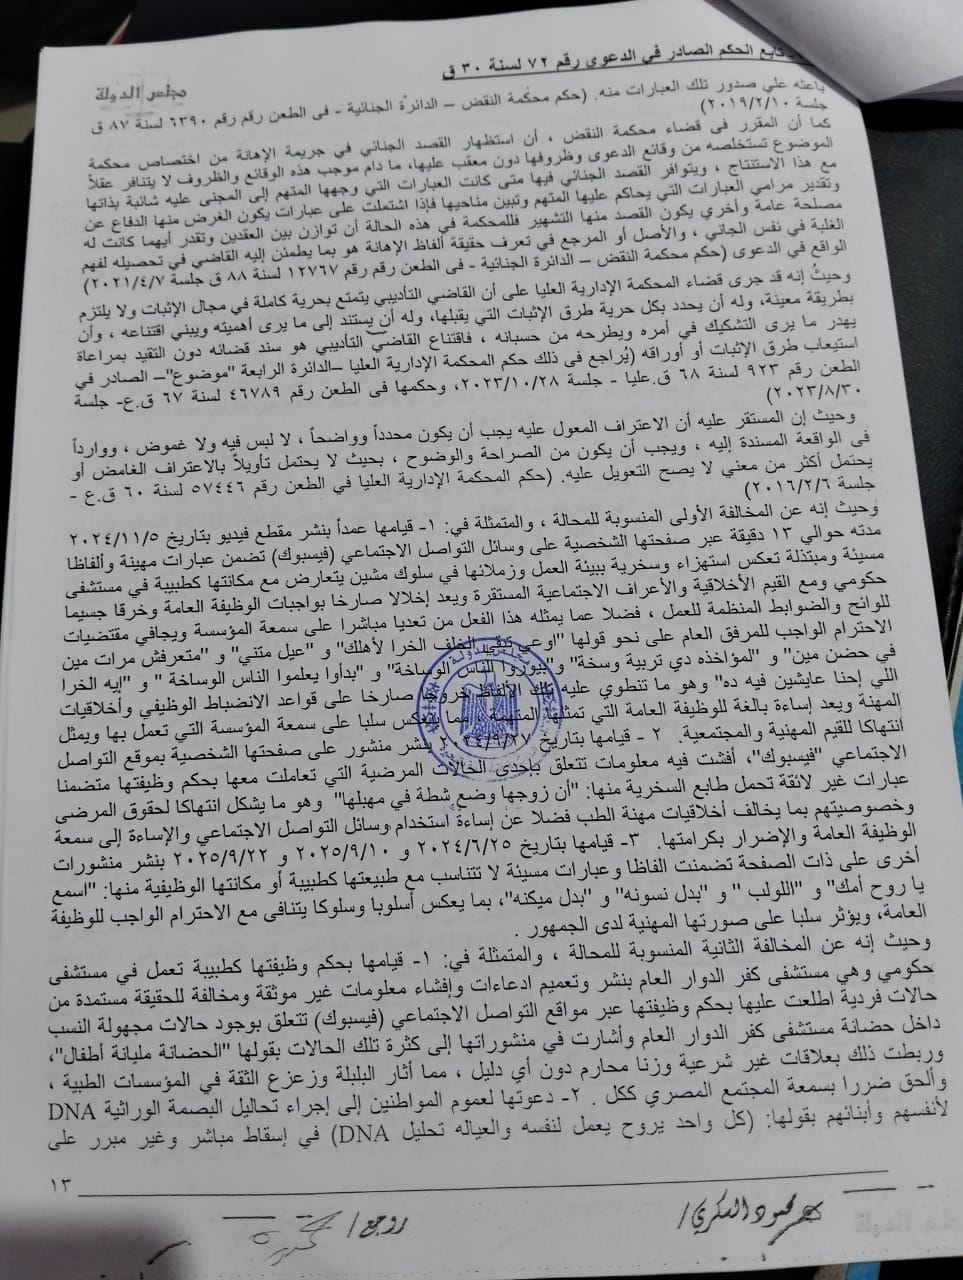 تابع الحكم الصادر في الدعوى رقم ٧٢ لسنة ٣٠ ق
مجلس الدولة
باعثه علي صدور تلك العبارات منه. (حكم محكمة النقض – الدائرة الجنائية - فى الطعن رقم رقم ٦٣٩٠ لسنة ٨٧ ق
جلسة ٢٠١٩/٢/١٠)
كما أن المقرر فى قضاء محكمة النقض ، أن استظهار القصد الجنائي في جريمة الإهانة من اختصاص محكمة
الموضوع تستخلصه من وقائع الدعوى وظروفها دون معقب عليها، ما دام موجب هذه الوقائع والظروف لا يتنافر عقلاً
مع هذا الاستنتاج ، ويتوافر القصد الجنائي فيها متى كانت العبارات التي وجهها المتهم إلى المجنى عليه شائنة بذاتها
وتقدير مرامي العبارات التي يحاكم عليها المتهم وتبين مناحيها فإذا اشتملت على عبارات يكون الغرض منها الدفاع عن
مصلحة عامة وأخري يكون القصد منها التشهير فللمحكمة في هذه الحالة أن توازن بين العقدين وتقدر أيهما كانت له
الغلبة في نفس الجاني ، والأصل أو المرجع في تعرف حقيقة ألفاظ الإهانة هو بما يطمئن إليه القاضي في تحصيله لفهم
الواقع في الدعوى (حكم محكمة النقض – الدائرة الجنائية - فى الطعن رقم رقم ١٢٧٦٧ لسنة ٨٨ ق جلسة ٢٠٢١/٤/٧)
وحيث إنه قد جرى قضاء المحكمة الإدارية العليا على أن القاضي التأديبي يتمتع بحرية كاملة في مجال الإثبات ولا يلتزم
بطريقة معينة، وله أن يحدد بكل حرية طرق الإثبات التي يقبلها، وله أن يستند إلى ما يرى أهميته ويبني اقتناعه ، وأن
يهدر ما يرى التشكيك في أمره ويطرحه من حسبانه ، فاقتناع القاضي التأديبي هو سند قضائه دون التقيد بمراعاة
استيعاب طرق الإثبات أو أوراقه (يُراجع فى ذلك حكم المحكمة الإدارية العليا –الدائرة الرابعة "موضوع"– الصادر في
الطعن رقم ٩٢٣ لسنة ٦٨ ق.عليا - جلسة ٢٠٢٣/١٠/٢٨، وحكمها فى الطعن رقم ٤٦٧٨٩ لسنة ٦٧ ق.ع- جلسة
٢٠٢٣/٨/٣٠)
وحيث إن المستقر عليه أن الاعتراف المعول عليه يجب أن يكون محدداً وواضحاً ، لا لبس فيه ولا غموض ، ووارداً
فى الواقعة المسندة إليه ، ويجب أن يكون من الصراحة والوضوح ، بحيث لا يحتمل تأويلاً بالاعتراف الغامض أو
يحتمل أكثر من معني لا يصح التعويل عليه. (حكم المحكمة الإدارية العليا في الطعن رقم ٥٧٤٤٦ لسنة ٦٠ ق.ع -
جلسة ٢٠١٦/٢/٦)
وحيث إنه عن المخالفة الأولى المنسوبة للمحالة ، والمتمثلة في: ١- قيامها عمداً بنشر مقطع فيديو بتاريخ ٢٠٢٤/١١/٥
مدته حوالي ١٣ دقيقة عبر صفحتها الشخصية على وسائل التواصل الاجتماعي (فيسبوك) تضمن عبارات مهينة وألفاظا
مسيئة ومبتذلة تعكس استهزاء وسخرية ببيئة العمل وزملائها في سلوك مشين يتعارض مع مكانتها كطبيبة في مستشفى
حكومي ومع القيم الأخلاقية والأعراف الاجتماعية المستقرة ويعد إخلالا صارخا بواجبات الوظيفة العامة وخرقا جسيما
للوائح والضوابط المنظمة للعمل ، فضلا عما يمثله هذا الفعل من تعديا مباشرا على سمعة المؤسسة ويجافي مقتضيات
الاحترام الواجب للمرفق العام على نحو قولها "اوعي تبقي الخلف الخرا لأهلك" و "عيل متني" و "متعرفش مرات مين
في حضن مين" و "لمؤاخذه دي تربية وسخة" و"بيوزوا الناس الوساخة" و "بدأوا يعلموا الناس الوساخة " و "إيه الخرا
اللي إحنا عايشين فيه ده" وهو ما تنطوي عليه تلك الألفاظ خروجا صارخا على قواعد الانضباط الوظيفي وأخلاقيات
المهنة ويعد إساءة بالغة للوظيفة العامة التي تمثلها المتهمة ، مما ينعكس سلبا على سمعة المؤسسة التي تعمل بها ويمثل
انتهاكا للقيم المهنية والمجتمعية. ٢ - قيامها بتاريخ ٢٠٢٤/٩/٢٧ بنشر منشور على صفحتها الشخصية بموقع التواصل
الاجتماعي "فيسبوك"، أفشت فيه معلومات تتعلق بإحدى الحالات المرضية التي تعاملت معها بحكم وظيفتها متضمنا
عبارات غير لائقة تحمل طابع السخرية منها: "أن زوجها وضع شطة في مهبلها" وهو ما يشكل انتهاكا لحقوق المرضى
وخصوصيتهم بما يخالف أخلاقيات مهنة الطب فضلا عن إساءة استخدام وسائل التواصل الاجتماعي والإساءة إلى سمعة
الوظيفة العامة والإضرار بكرامتها. ٣- قيامها بتاريخ ٢٠٢٤/٦/٢٥ و ٢٠٢٥/٩/١٠ و ٢٠٢٥/٩/٢٢ بنشر منشورات
أخرى على ذات الصفحة تضمنت الفاظا وعبارات مسيئة لا تتناسب مع طبيعتها كطبيبة أو مكانتها الوظيفية منها: "اسمع
يا روح أمك" و "اللولب " و "بدل نسونه" و "بدل ميكنه"، بما يعكس أسلوبا وسلوكا يتنافى مع الاحترام الواجب للوظيفة
العامة، ويؤثر سلبا على صورتها المهنية لدى الجمهور .
وحيث إنه عن المخالفة الثانية المنسوبة للمحالة ، والمتمثلة في: ١- قيامها بحكم وظيفتها كطبيبة تعمل في مستشفى
حكومي وهي مستشفى كفر الدوار العام بنشر وتعميم ادعاءات وإفشاء معلومات غير موثقة ومخالفة للحقيقة مستمدة من
حالات فردية اطلعت عليها بحكم وظيفتها عبر مواقع التواصل الاجتماعي (فيسبوك) تتعلق بوجود حالات مجهولة النسب
داخل حضانة مستشفى كفر الدوار العام وأشارت في منشوراتها إلى كثرة تلك الحالات بقولها "الحضانة مليانة أطفال"،
وربطت ذلك بعلاقات غير شرعية وزنا محارم دون أي دليل ، مما أثار البلبلة وزعزع الثقة في المؤسسات الطبية ،
وألحق ضررا بسمعة المجتمع المصري ككل . ٢- دعوتها لعموم المواطنين إلى إجراء تحاليل البصمة الوراثية DNA
لأنفسهم وأبنائهم بقولها: (كل واحد يروح يعمل لنفسه والعياله تحليل DNA) في إسقاط مباشر وغير مبرر على
١٣
محمود السكري/
روجع/